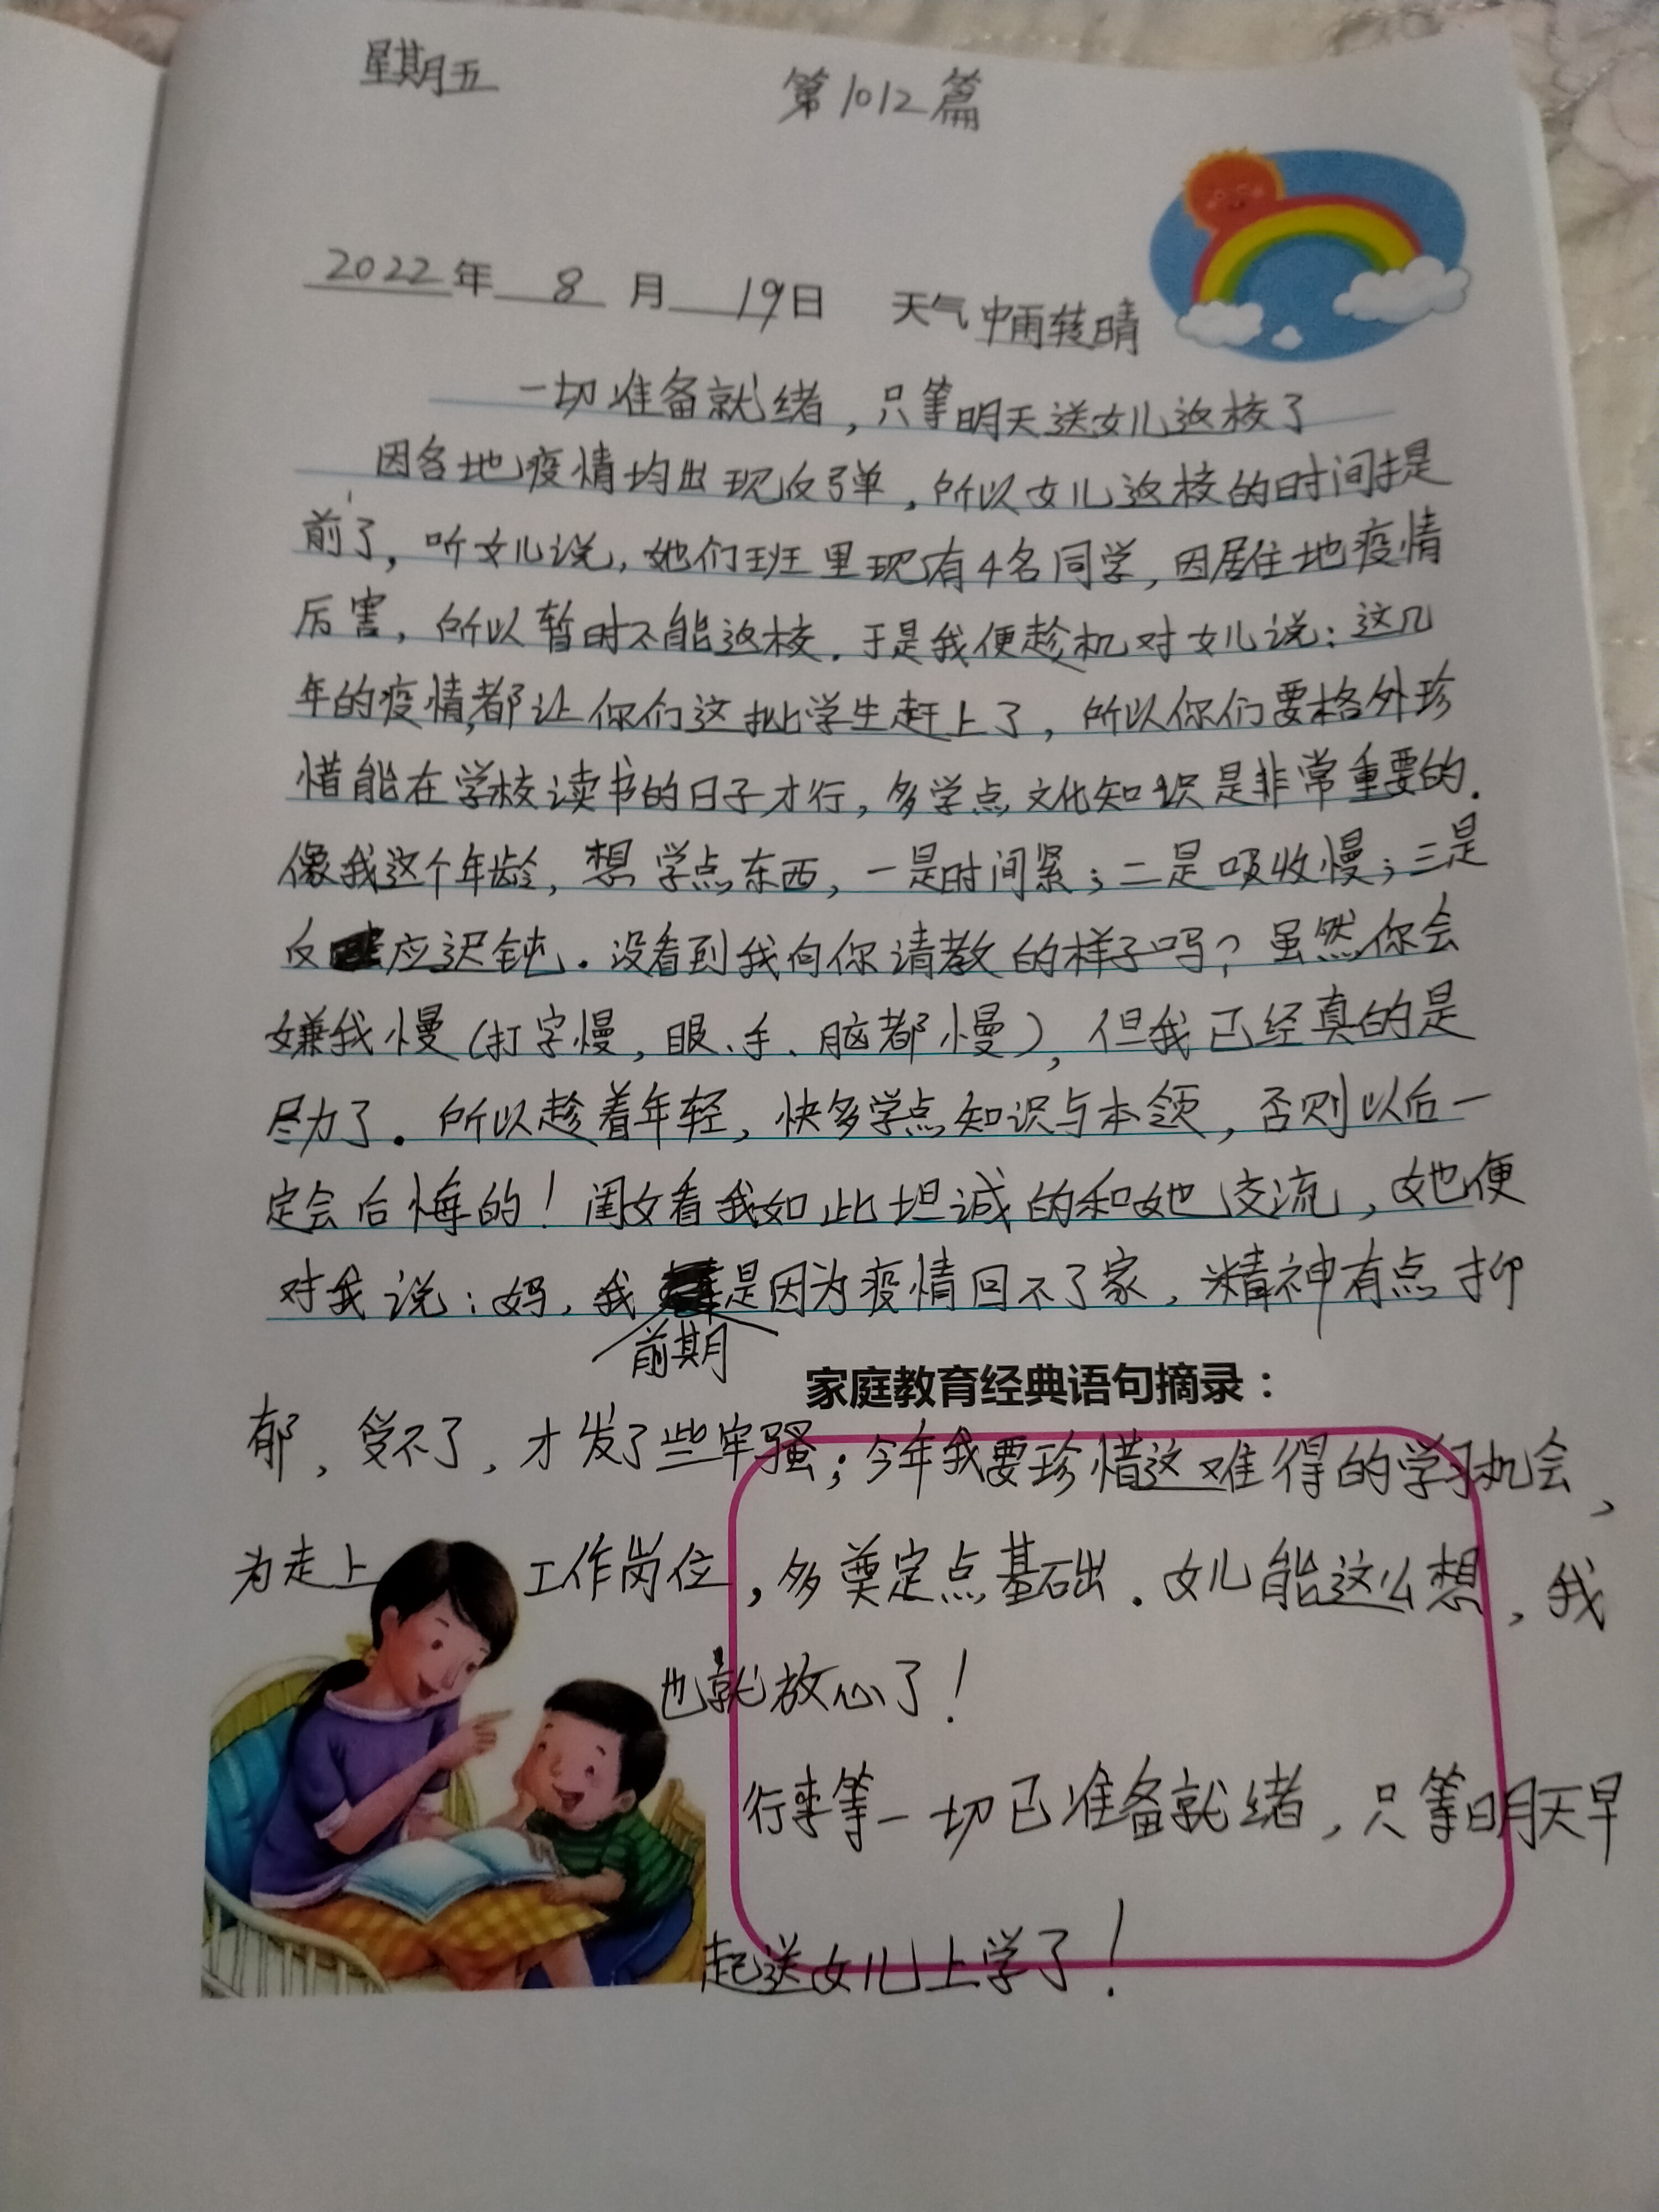 星期五
第1012篇
2022年 8 月 19日 天气 中雨转晴
一切准备就绪，只等明天送女儿返校了
因各地疫情均出现反弹，所以女儿返校的时间提
前了，听女儿说，她们班里现有4名同学，因居住地疫情
厉害，所以暂时不能返校．于是我便趁机对女儿说：这几
年的疫情，都让你们这批学生赶上了，所以你们要格外珍
惜能在学校读书的日子才行，多学点文化知识是非常重要的．
像我这个年龄，想学点东西，一是时间紧；二是吸收慢；三是
反应迟钝．没看到我向你请教的样子吗？虽然你会
嫌我慢（打字慢，眼、手、脑都慢），但我已经真的是
尽力了．所以趁着年轻，快多学点知识与本领，否则以后一
定会后悔的！闺女看我如此坦诚的和她交流，她便
对我说：妈，我是因为疫情回不了家，精神有点抑
前期
家庭教育经典语句摘录：
郁，受不了，才发了些牢骚；今年我要珍惜这难得的学习机会，
为走上工作岗位，多奠定点基础．女儿能这么想，我
也就放心了！
行李等一切已准备就绪，只等明天早
起送女儿上学了！